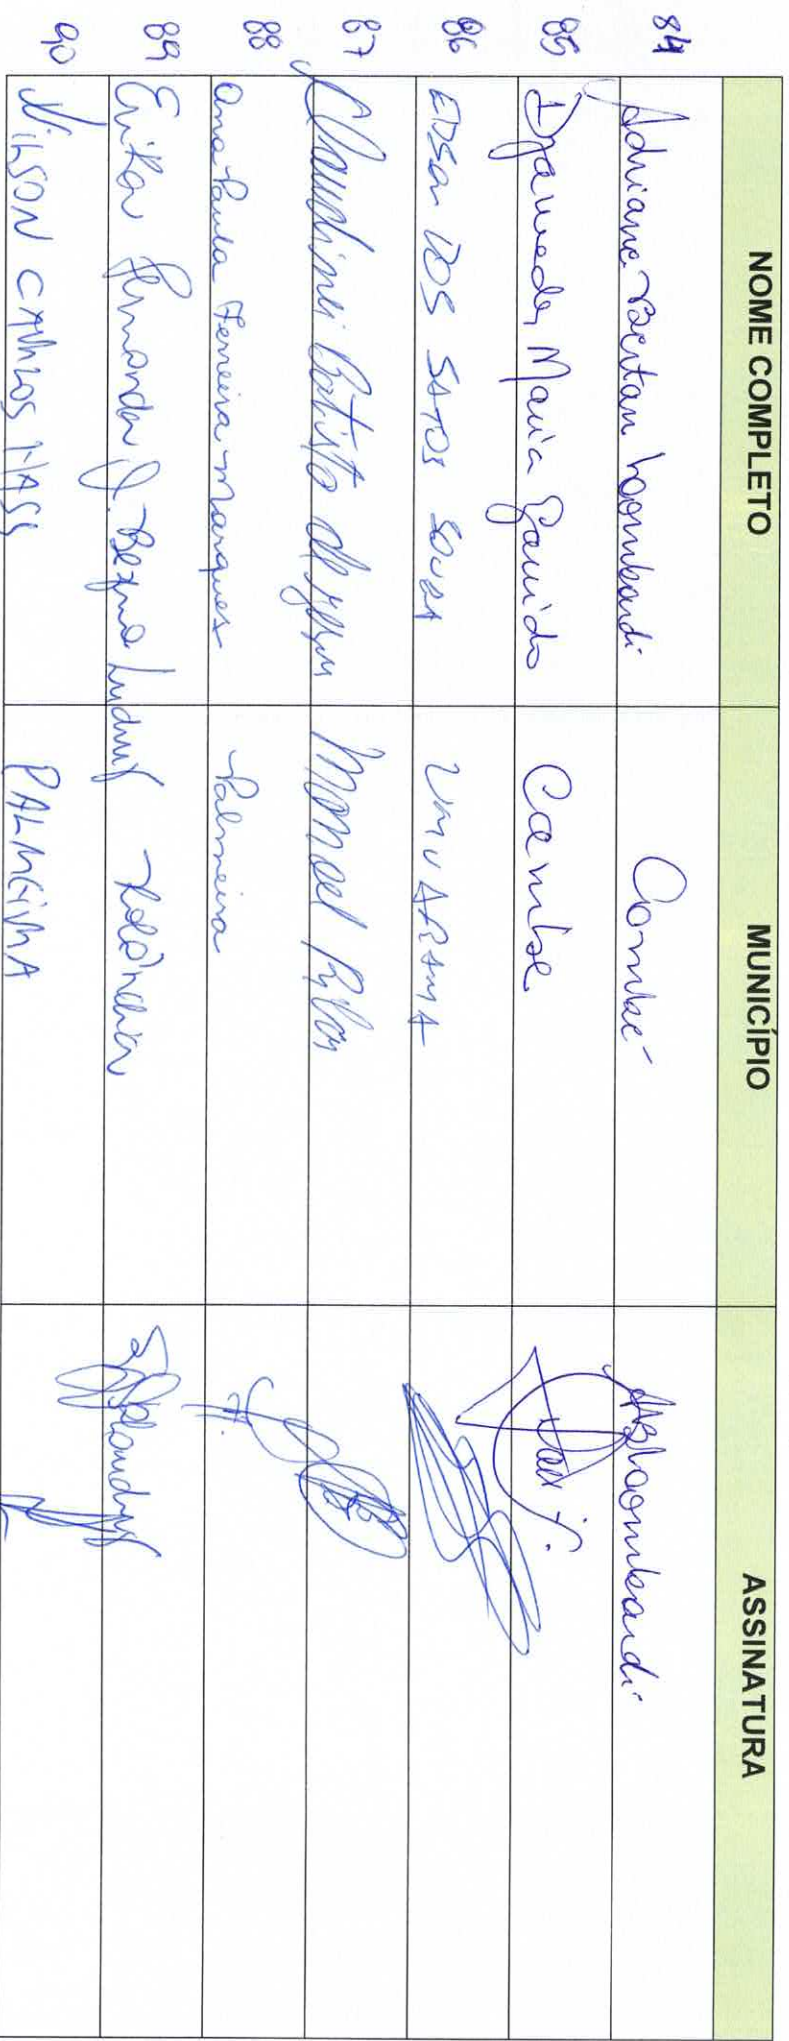 NOME COMPLETO MUNICÍPIO ASSINATURA
84 Adriane Loombardi Cambé ABLoombardi
85 Djamedes Maria Garrido Cambé
86 EDSON DOS SATOS SOUZA UMUARAMA
87 Claudinei Batista Manoel Ribas
88 Ana Paula Ferreira Marques Palmeira
89 Erika Fernanda J. Bezerra Ludwig Rolândia
90 NILSON CARLOS HASS PALMEIRA